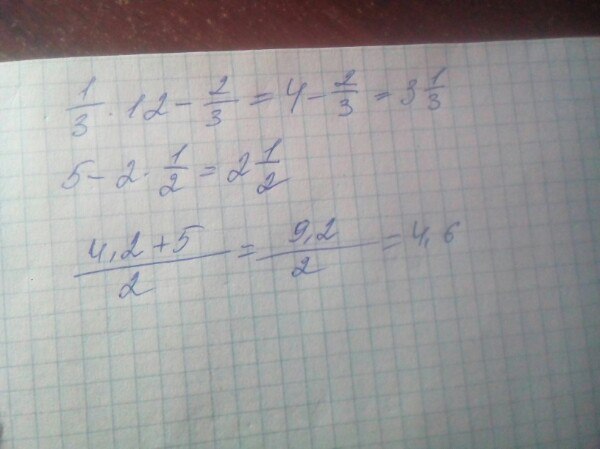 1/3 · 12 - 2/3 = 4 - 2/3 = 3 1/3
5 - 2 · 1/2 = 2 1/2
4,2+5/2 = 9,2/2 = 4,6